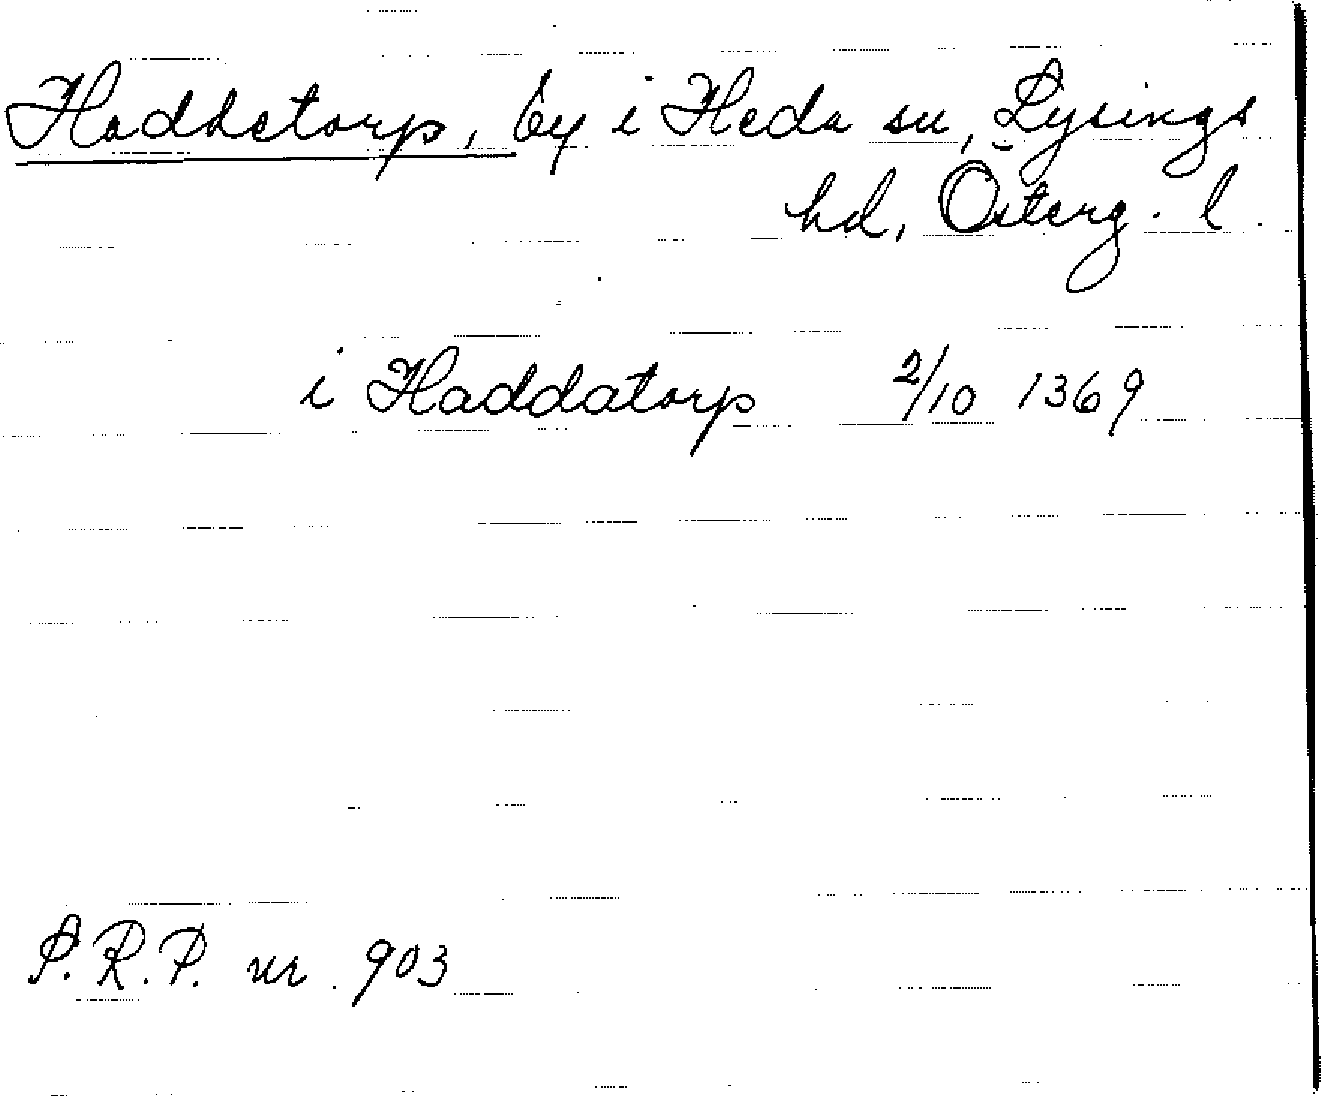 Haddetorp, by i Heda sn, Lysings
hd, Österg. l.
i Haddatorp 2/10 1369
S.R.P. nr. 903